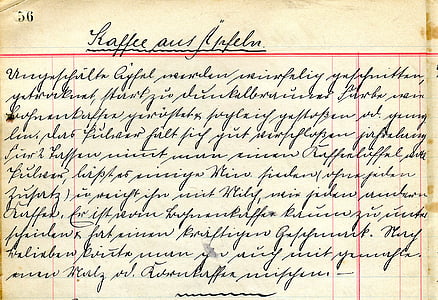 56
Kaffee aus Äpfeln.
Ungeschälte Äpfel werden würfelig geschnitten,
getrocknet, stark zu dunkelbrauner Farbe wie
Bohnenkaffee geröstet, sogleich gestoßen od. gemah
len. Das Pulver hält sich gut verschloßen jahrelang.
Für 2 Tassen nimt man einen Kaffeelöffel
Pulver, läßt es einige Min. sieden (ohne jeden
Zusatz) u. reicht ihn mit Milch, wie jeden andern
Kaffee. Er ist vom Bohnenkaffee kaum zu unter
scheiden u. hat einen kräftigen Geschmack. Nach
Belieben könte man ja auch mit gemahle
nem Malz od. Kornkaffee mischen. —